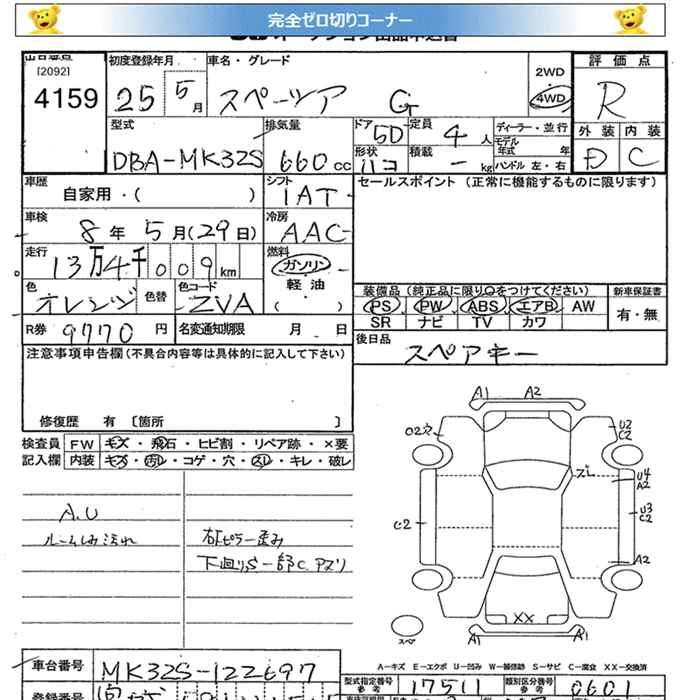 完全ゼロ切りコーナー
[2092]
4159
初度登録年月
25 5月
車名・グレード
スペーシア G
2WD
4WD
評価点
R
外装 内装
D C
型式
DBA-MK32S
排気量
660cc
ドア 5D
定員 4人
形状 ハコ
積載 - kg
ディーラー・並行
モデル年式 年
ハンドル 左・右
車歴
自家用・( )
シフト
IAT
セールスポイント (正常に機能するものに限ります)
車検
8年 5月(29日)
冷房
AAC
走行
13万4千009km
燃料
ガソリン
軽油
( )
色
オレンジ
色替
色コード
ZVA
装備品 (純正品に限り○をつけてください)
PS PW ABS エアB AW
SR ナビ TV カワ
新車保証書
有・無
R券 9770円
名変通知期限 月 日
後日品
スペアキー
注意事項申告欄 (不具合内容等は具体的に記入して下さい)
修復歴 有 〔箇所 〕
検査員 FW キズ・飛石・ヒビ割・リペア跡・×要
記入欄 内装 キズ・汚れ・コゲ・穴・スレ・キレ・破レ
A.U
ルーム内汚れ
右ピラー歪み
下廻りS一部C アズリ
A1 A2
02穴
U2
C2
ズレ
U4
A2
U3
C2
C2
A2
XX
A1 A1
スペア
A-キズ E-エクボ U-凹み W-補修跡 S-サビ C-腐食 XX-交換済
車台番号
MK32S-122697
型式指定番号
参考
17511
類別区分番号
参考
0601
登録番号